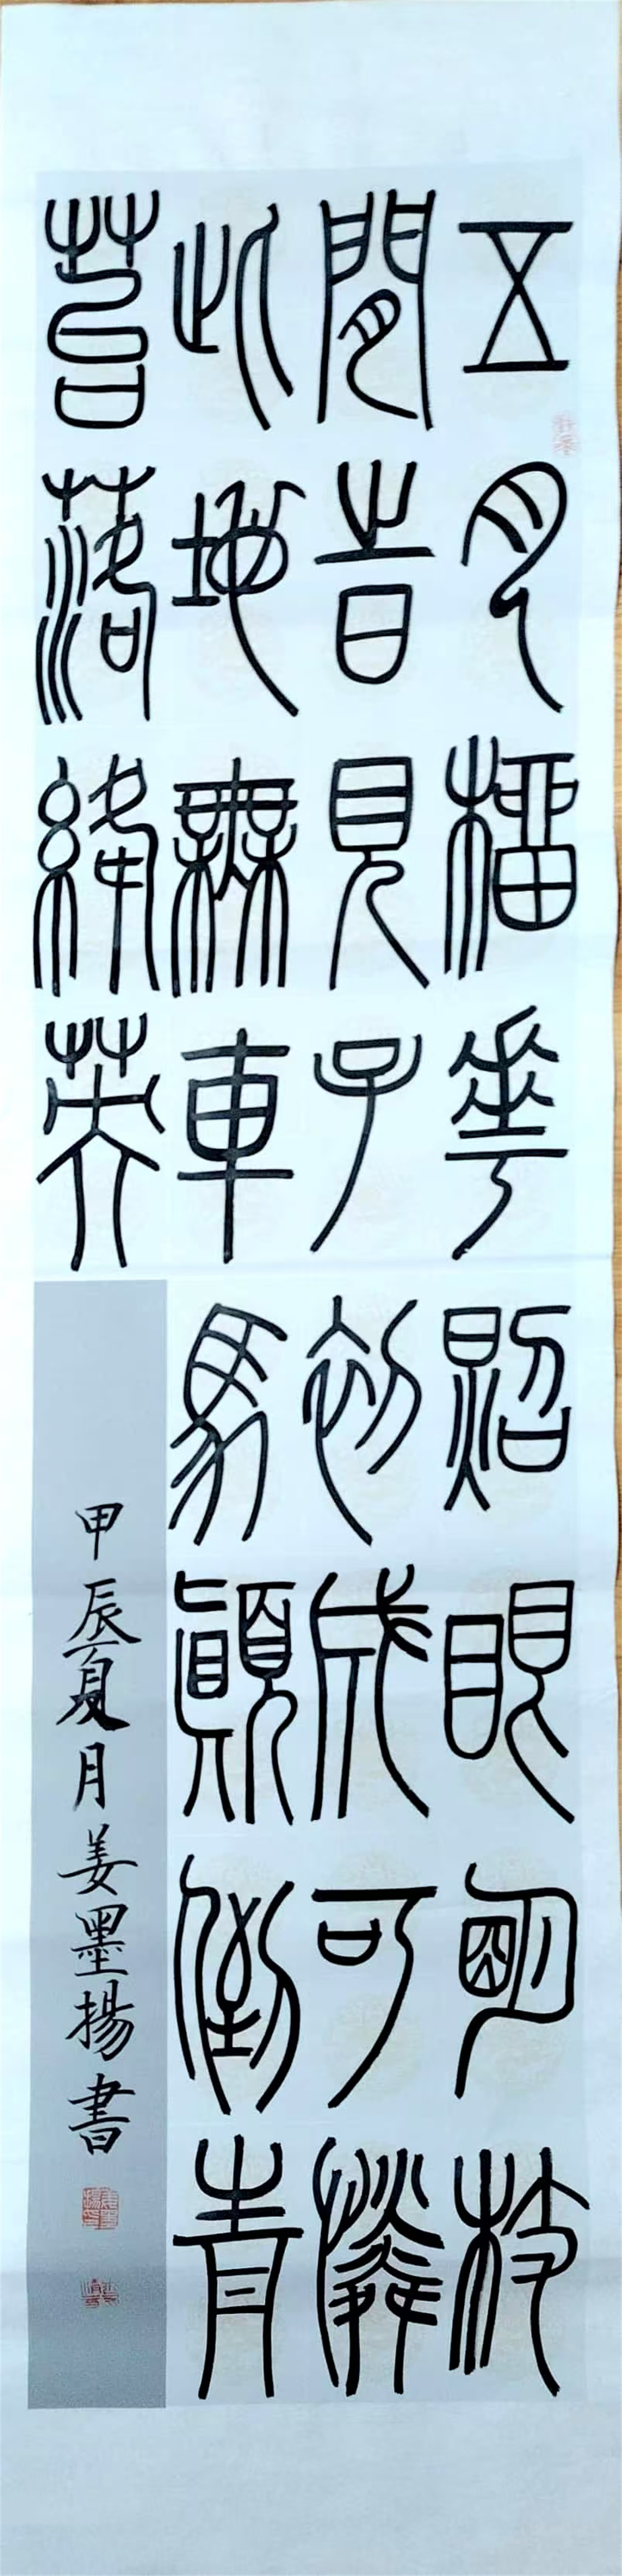 五月榴花照眼明枝
閒時見子初成可憐
此地無車馬顛倒青
苔落絳英
甲辰夏月姜墨揚書